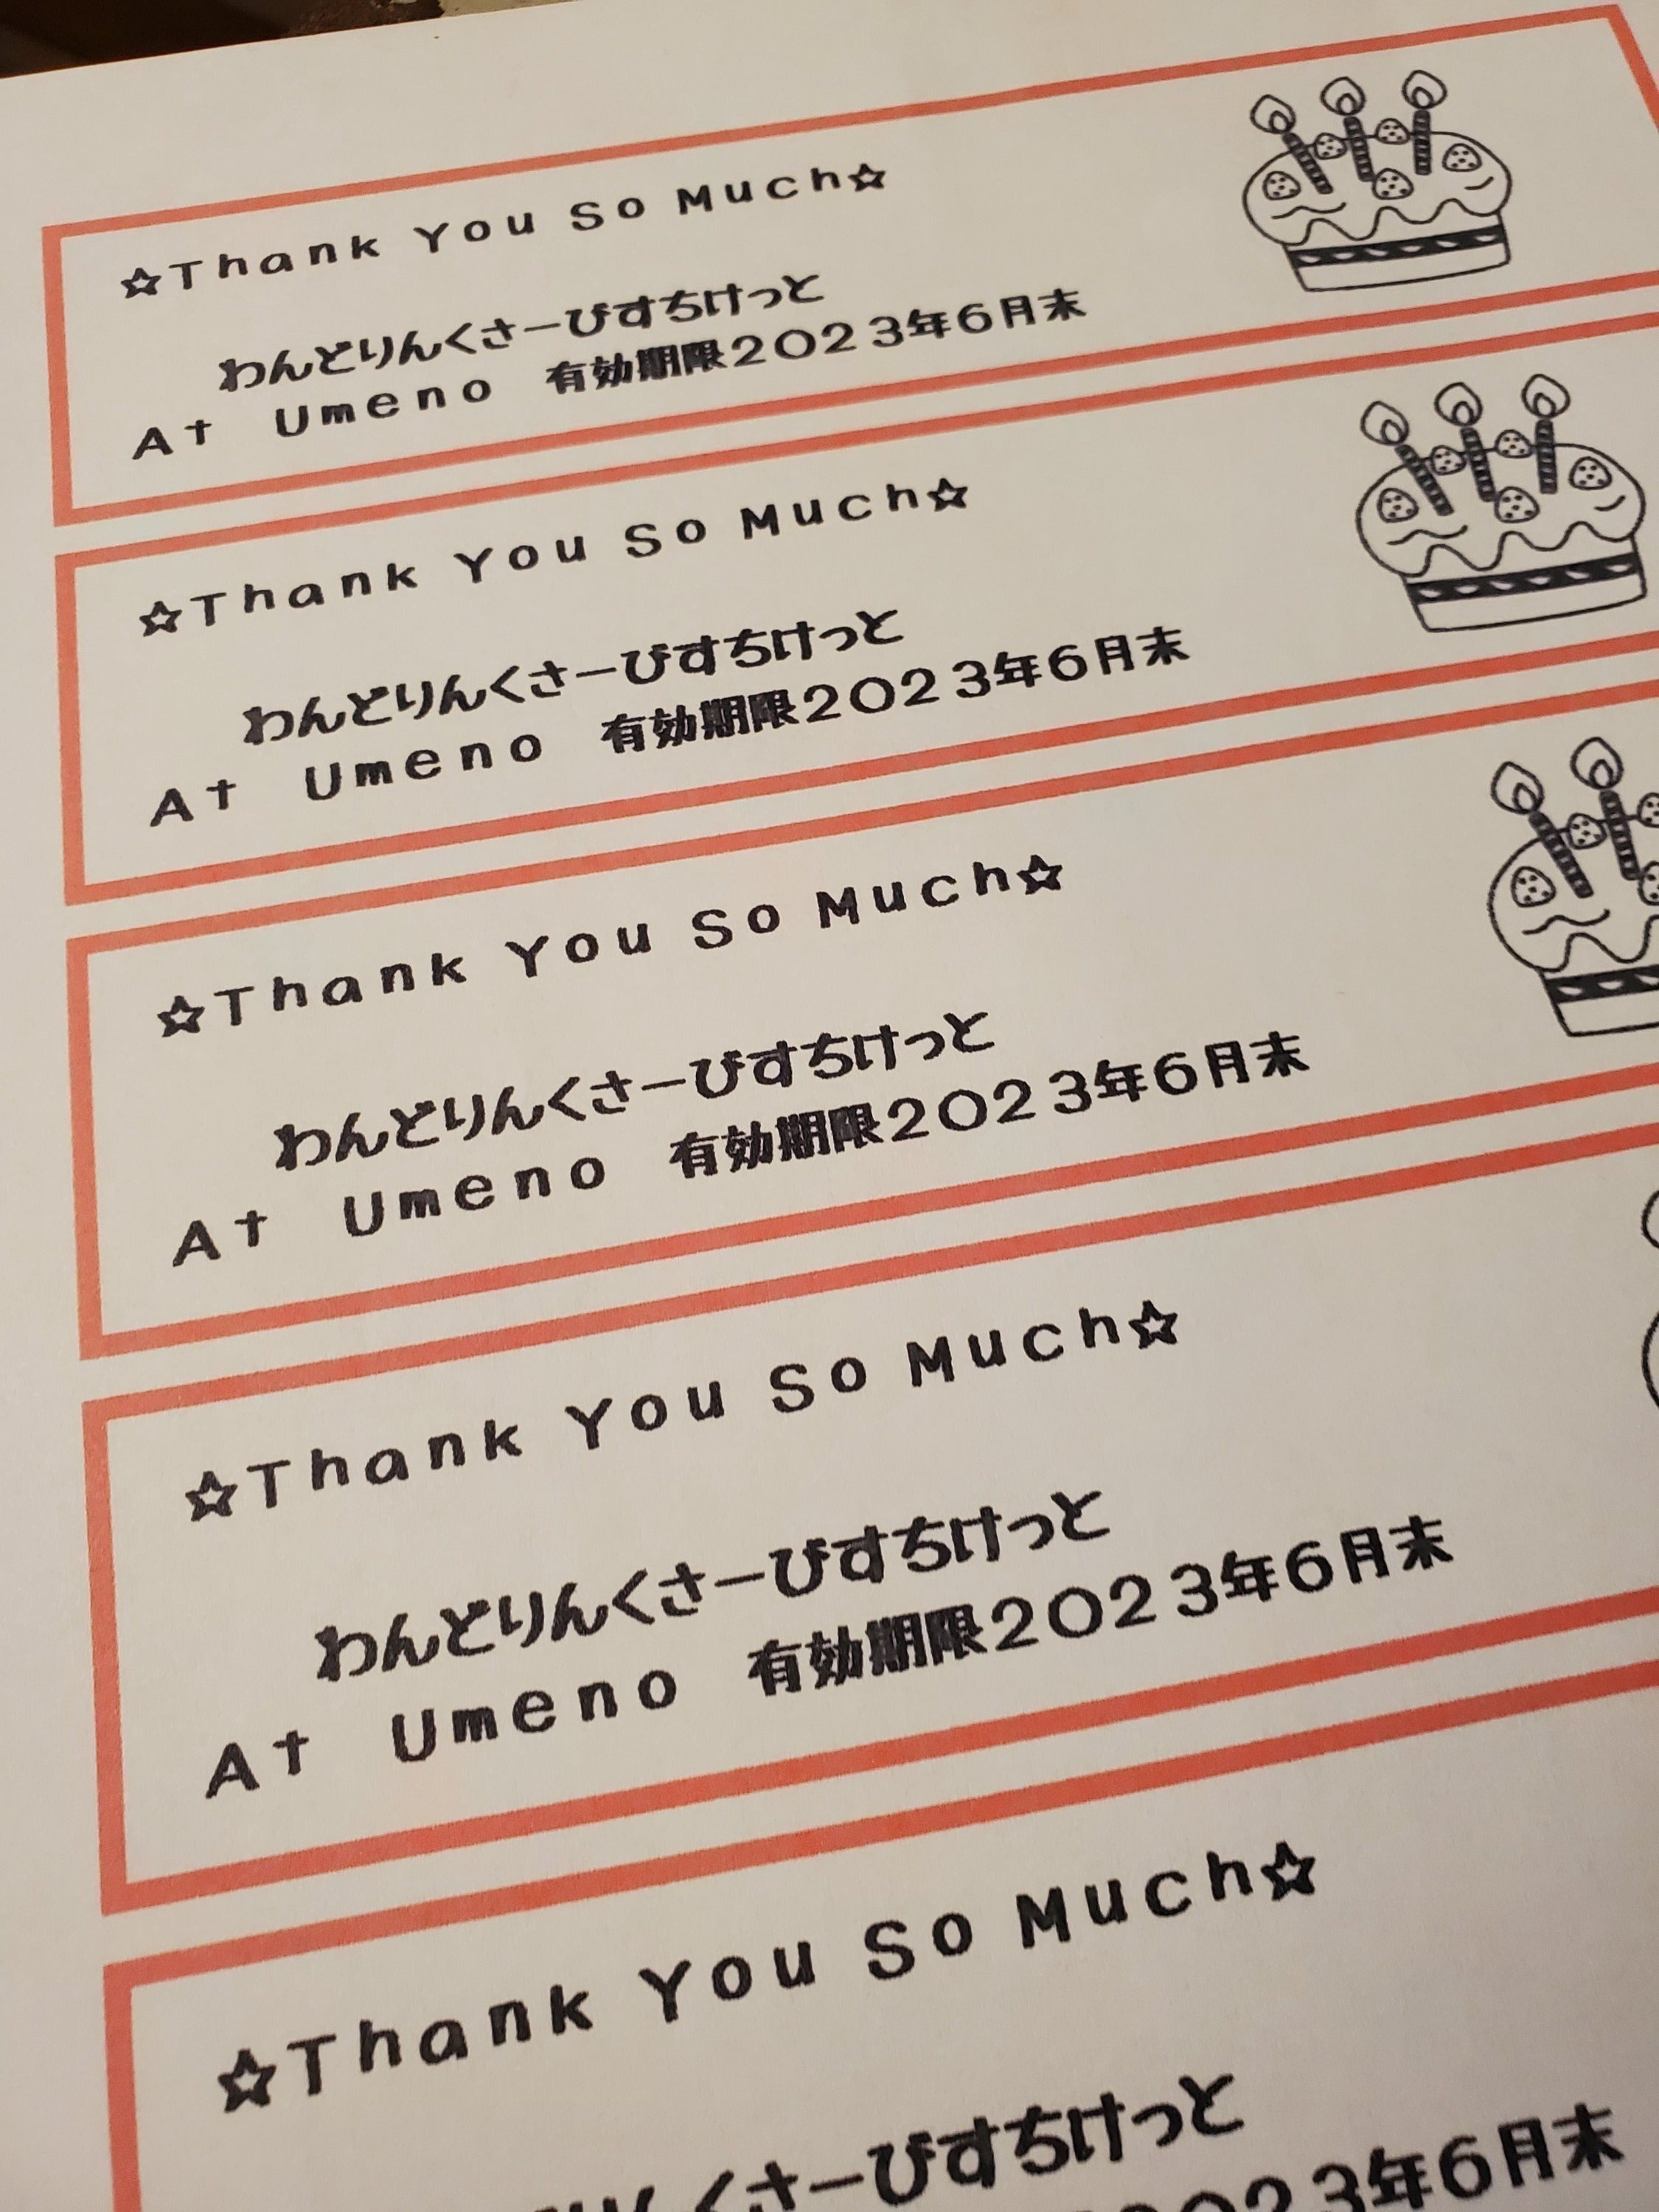 ☆Thank You So Much☆
わんどりんくさーびすちけっと
At Umeno 有効期限2023年6月末
☆Thank You So Much☆
わんどりんくさーびすちけっと
At Umeno 有効期限2023年6月末
☆Thank You So Much☆
わんどりんくさーびすちけっと
At Umeno 有効期限2023年6月末
☆Thank You So Much☆
わんどりんくさーびすちけっと
At Umeno 有効期限2023年6月末
☆Thank You So Much☆
くさーびすちけっと
2023年6月末